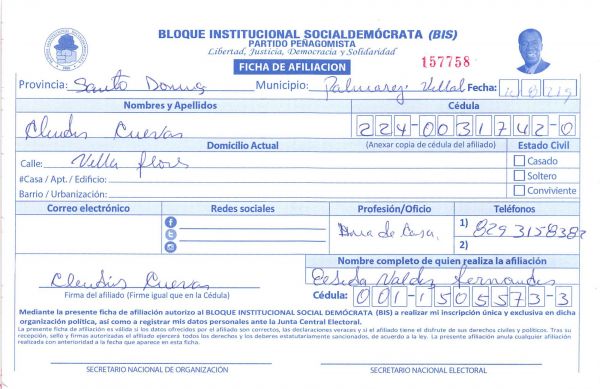 BLOQUE INSTITUCIONAL SOCIALDEMÓCRATA (BIS)
PARTIDO PEÑAGOMISTA
Libertad, Justicia, Democracia y Solidaridad
FICHA DE AFILIACION
157758
Provincia: Santo Domingo Municipio: Palmarejo Villa Fecha:
Nombres y Apellidos Cédula
Claudis Cuevas 224-0031742-0
Domicilio Actual (Anexar copia de cédula del afiliado) Estado Civil
Calle: Villa flores Casado
#Casa / Apt. / Edificio: Soltero
Barrio / Urbanización: Conviviente
Correo electrónico Redes sociales Profesión/Oficio Teléfonos
Ama de Casa 1) 829 3158382
2)
Nombre completo de quien realiza la afiliación
Claudis Cuevas Valdez fernandez
Firma del afiliado (Firme igual que en la Cédula) Cédula: 001-1505573-3
Mediante la presente ficha de afiliación autorizo al BLOQUE INSTITUCIONAL SOCIAL DEMÓCRATA (BIS) a realizar mi inscripción única y exclusiva en dicha
organización política, así como a registrar mis datos personales ante la Junta Central Electoral.
La presente ficha de afiliación es válida si los datos ofrecidos por el afiliado son correctos, las declaraciones veraces y si el afiliado tiene el disfrute de sus derechos civiles y políticos. Tras su
recepción, sello y firmas autorizadas el afiliado ejercerá todos los derechos y los deberes estatutariamente sancionados, de acuerdo a la ley. La presente afiliación anula cualquier afiliación
realizada con anterioridad a la fecha que aparece en esta ficha.
SECRETARIO NACIONAL DE ORGANIZACIÓN SECRETARIO NACIONAL ELECTORAL